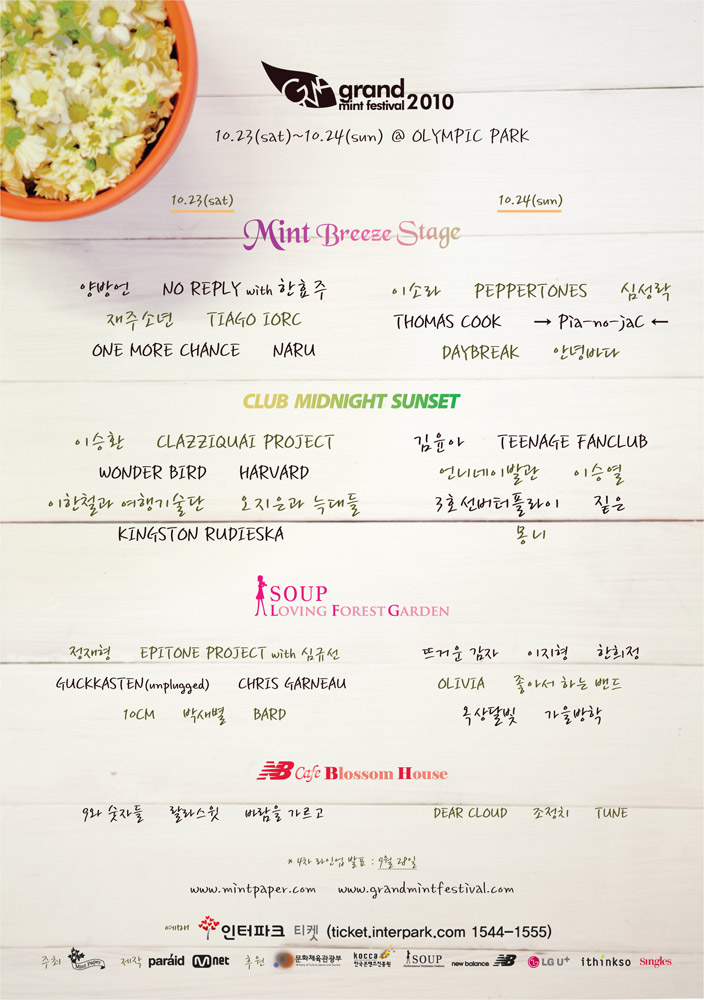 grand
mint festival 2010
10.23(sat)~10.24(sun) @ OLYMPIC PARK
10.23(sat) 10.24(sun)
Mint Breeze Stage
양방언 NO REPLY with 한효주 이소라 PEPPERTONES 심성락
재주소년 TIAGO IORC THOMAS COOK → Pia-no-jaC ←
ONE MORE CHANCE NARU DAYBREAK 안녕바다
CLUB MIDNIGHT SUNSET
이승환 CLAZZIQUAI PROJECT 김윤아 TEENAGE FANCLUB
WONDER BIRD HARVARD 언니네이발관 이승열
이한철과 여행기술단 오지은과 늑대들 3호선버터플라이 짙은
KINGSTON RUDIESKA 몽니
SOUP
LOVING FOREST GARDEN
정재형 EPITONE PROJECT with 심규선 뜨거운 감자 이지형 한희정
GUCKKASTEN(unplugged) CHRIS GARNEAU OLIVIA 좋아서 하는 밴드
10CM 박새별 BARD 옥상달빛 가을방학
NB Cafe Blossom House
9와 숫자들 랄라스윗 바람을 가르고 DEAR CLOUD 조정치 TUNE
* 4차 라인업 발표 : 9월 28일
www.mintpaper.com www.grandmintfestival.com
예매 인터파크 티켓 (ticket.interpark.com 1544-1555)
주최 Mint Paper 제작 paraid Mnet 후원 문화체육관광부 kocca 한국콘텐츠진흥원 SOUP new balance NB LG U+ ithinkso Singles